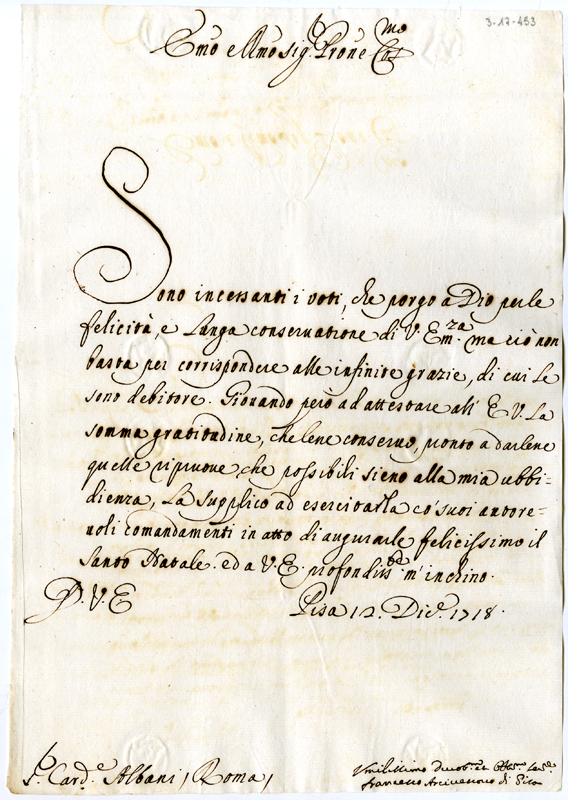 3-17-453
Emo e Rmo Sigr. Prone Colmo
Sono incessanti i voti, che porgo a Dio per le
felicità, e lunga conservatione di V. Emza. ma ciò non
basta per corrispondere alle infinite grazie, di cui Le
sono debitore. Giovando però ad attestare all' E V. La
somma gratitudine, che lene conservo, pronto a darlene
quelle ripruove, che possibili sieno alla mia ubbi=
dienza, La supplico ad esercitarla co' suoi autore=
voli comandamenti in atto di augurarle felicissimo il
Santo Natale. ed a V. E. profondite. m'inchino.
D. V. E Pisa 12. Dice. 1718.
Sr. Carde. Albani / Roma /
Umilissimo Francesco Arcivescovo di Pisa